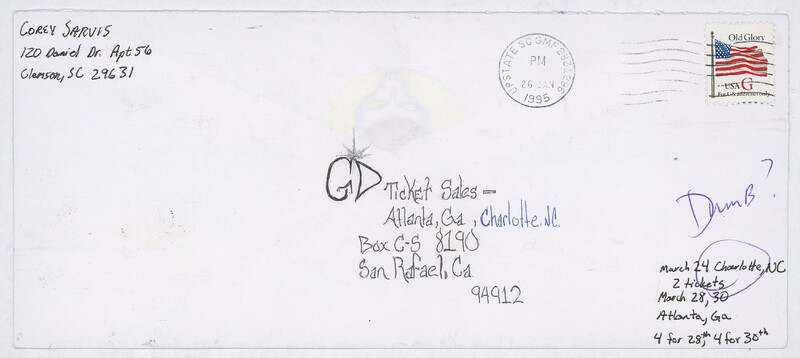 Corey Sarvis
120 Daniel Dr. Apt 56
Clemson, SC 29631
UPSTATE SC GMF 296
PM
26 JAN
1995
Old Glory
USA G
For U.S. addresses only
GD Ticket Sales —
Atlanta, Ga, Charlotte, NC.
Box C-S 8190
San Rafael, Ca
94912
DumB?
March 24 Charlotte, NC
2 tickets
March 28, 30
Atlanta, Ga
4 for 28,th 4 for 30th